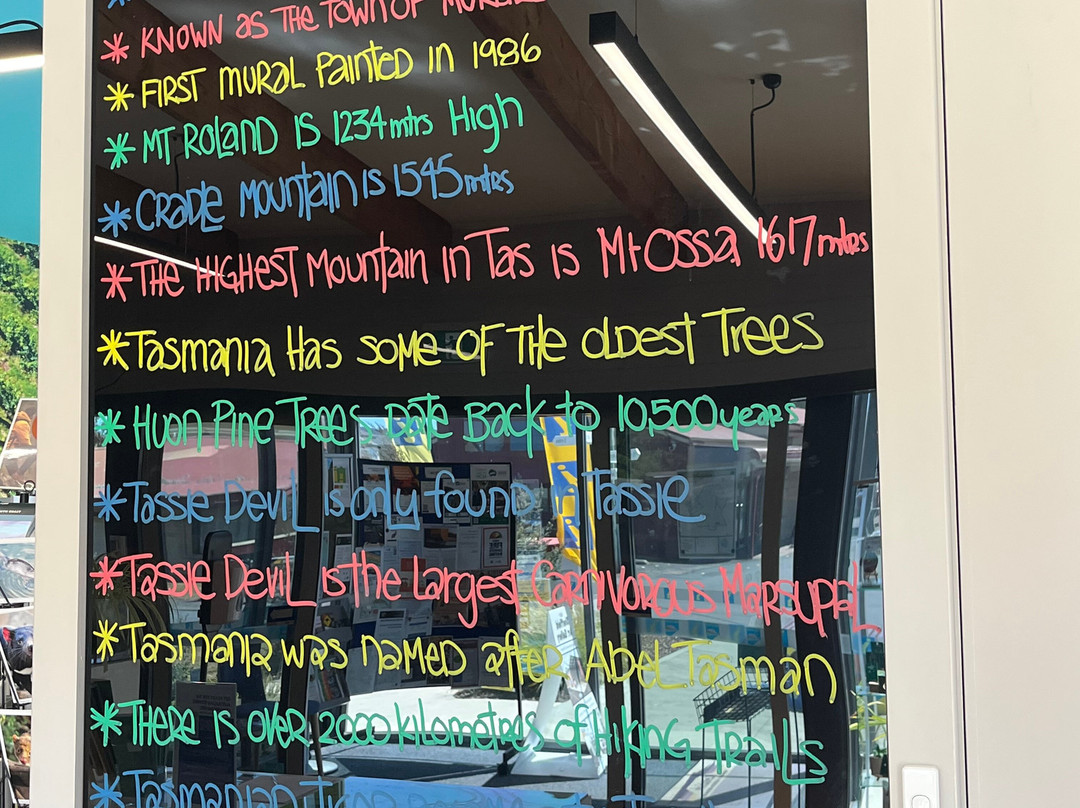 * KNOWN AS THE TOWN OF
* FIRST MURAL PAINTED IN 1986
* MT ROLAND IS 1234mtrs High
* CRADLE MOUNTAIN IS 1545mtres
* THE HIGHEST MOUNTAIN IN TAS IS Mt Ossa 1617mtres
* Tasmania Has SOME OF THE OLDEST TREES
* Huon Pine Trees DATE Back to 10,500 years
* Tassie Devil is only found in Tassie
* Tassie Devil is the Largest Carnivorous Marsupial
* Tasmania was named after Abel Tasman
* THERE IS OVER 2000 kilometres of Hiking Trails
* Tasmanian